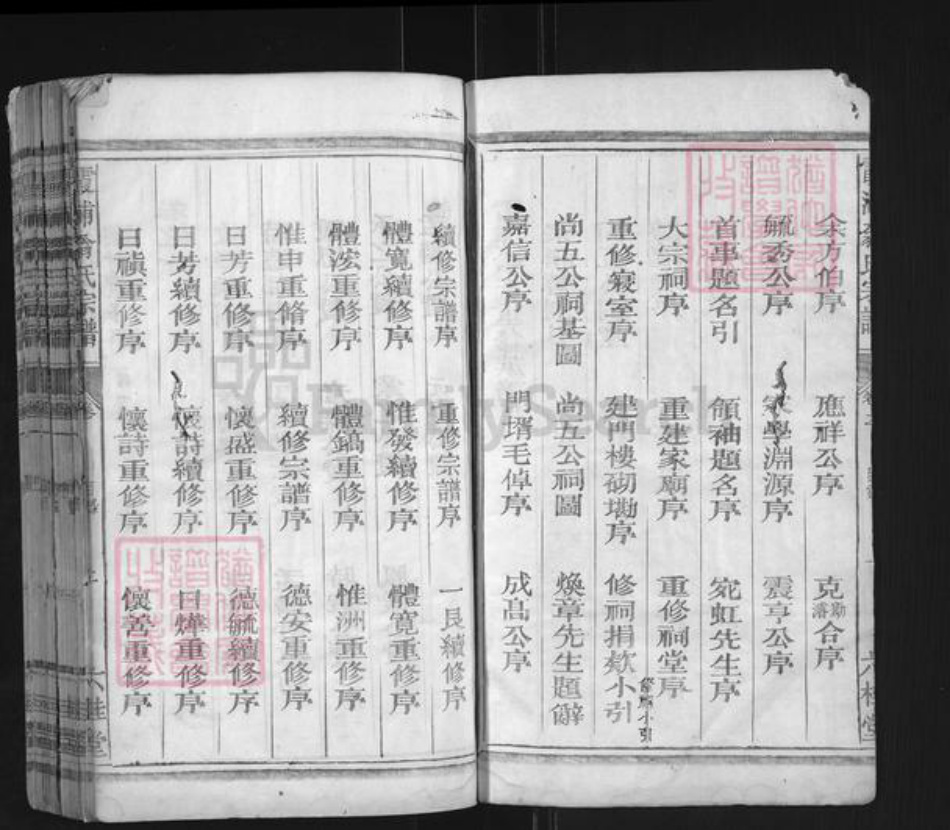 余方伯序 應祥公序 克勤濬合序
毓秀公序 家學淵源序 震亨公序
首事題名引 領袖題名序 宛虹先生序
大宗祠序 重建家廟序 重修祠堂序
重修寢室序 建門樓砌墈序 修祠捐欵小引
尚五公祠基圖 尚五公祠圖 煥章先生題辭
嘉信公序 門壻毛倬序 成高公序
續修宗譜序 重修宗譜序 一艮續修序
體寬續修序 惟發續修序 體寬重修序
體浤重修序 體鎬重修序 惟洲重修序
惟申重脩序 續修宗譜序 德安重修序
日芳重修序 懷盛重修序 德毓續修序
日芳續修序 懷詩續修序 日燁重修序
日禎重修序 懷詩重修序 懷善重修序
霞浦翁氏宗譜
六桂堂
FamilySearch